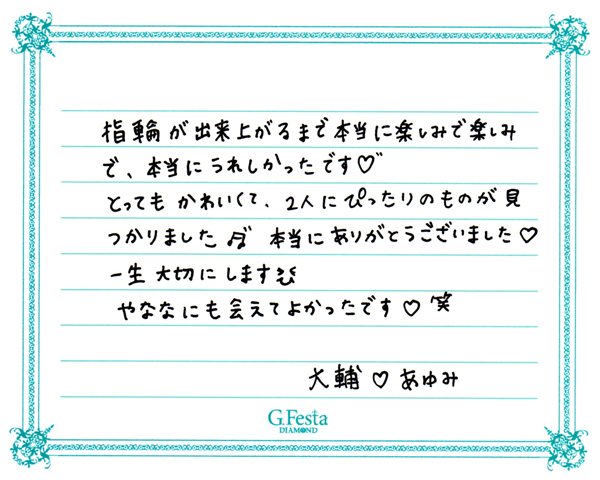 指輪が出来上がるまで本当に楽しみで楽しみ
で、本当にうれしかったです♡
とっても かわいくて、2人にぴったりのものが見
つかりました♬ 本当にありがとうございました♡
一生 大切にします
やななにも会えてよかったです♡ 笑
大輔♡あゆみ
G.Festa
DIAMOND